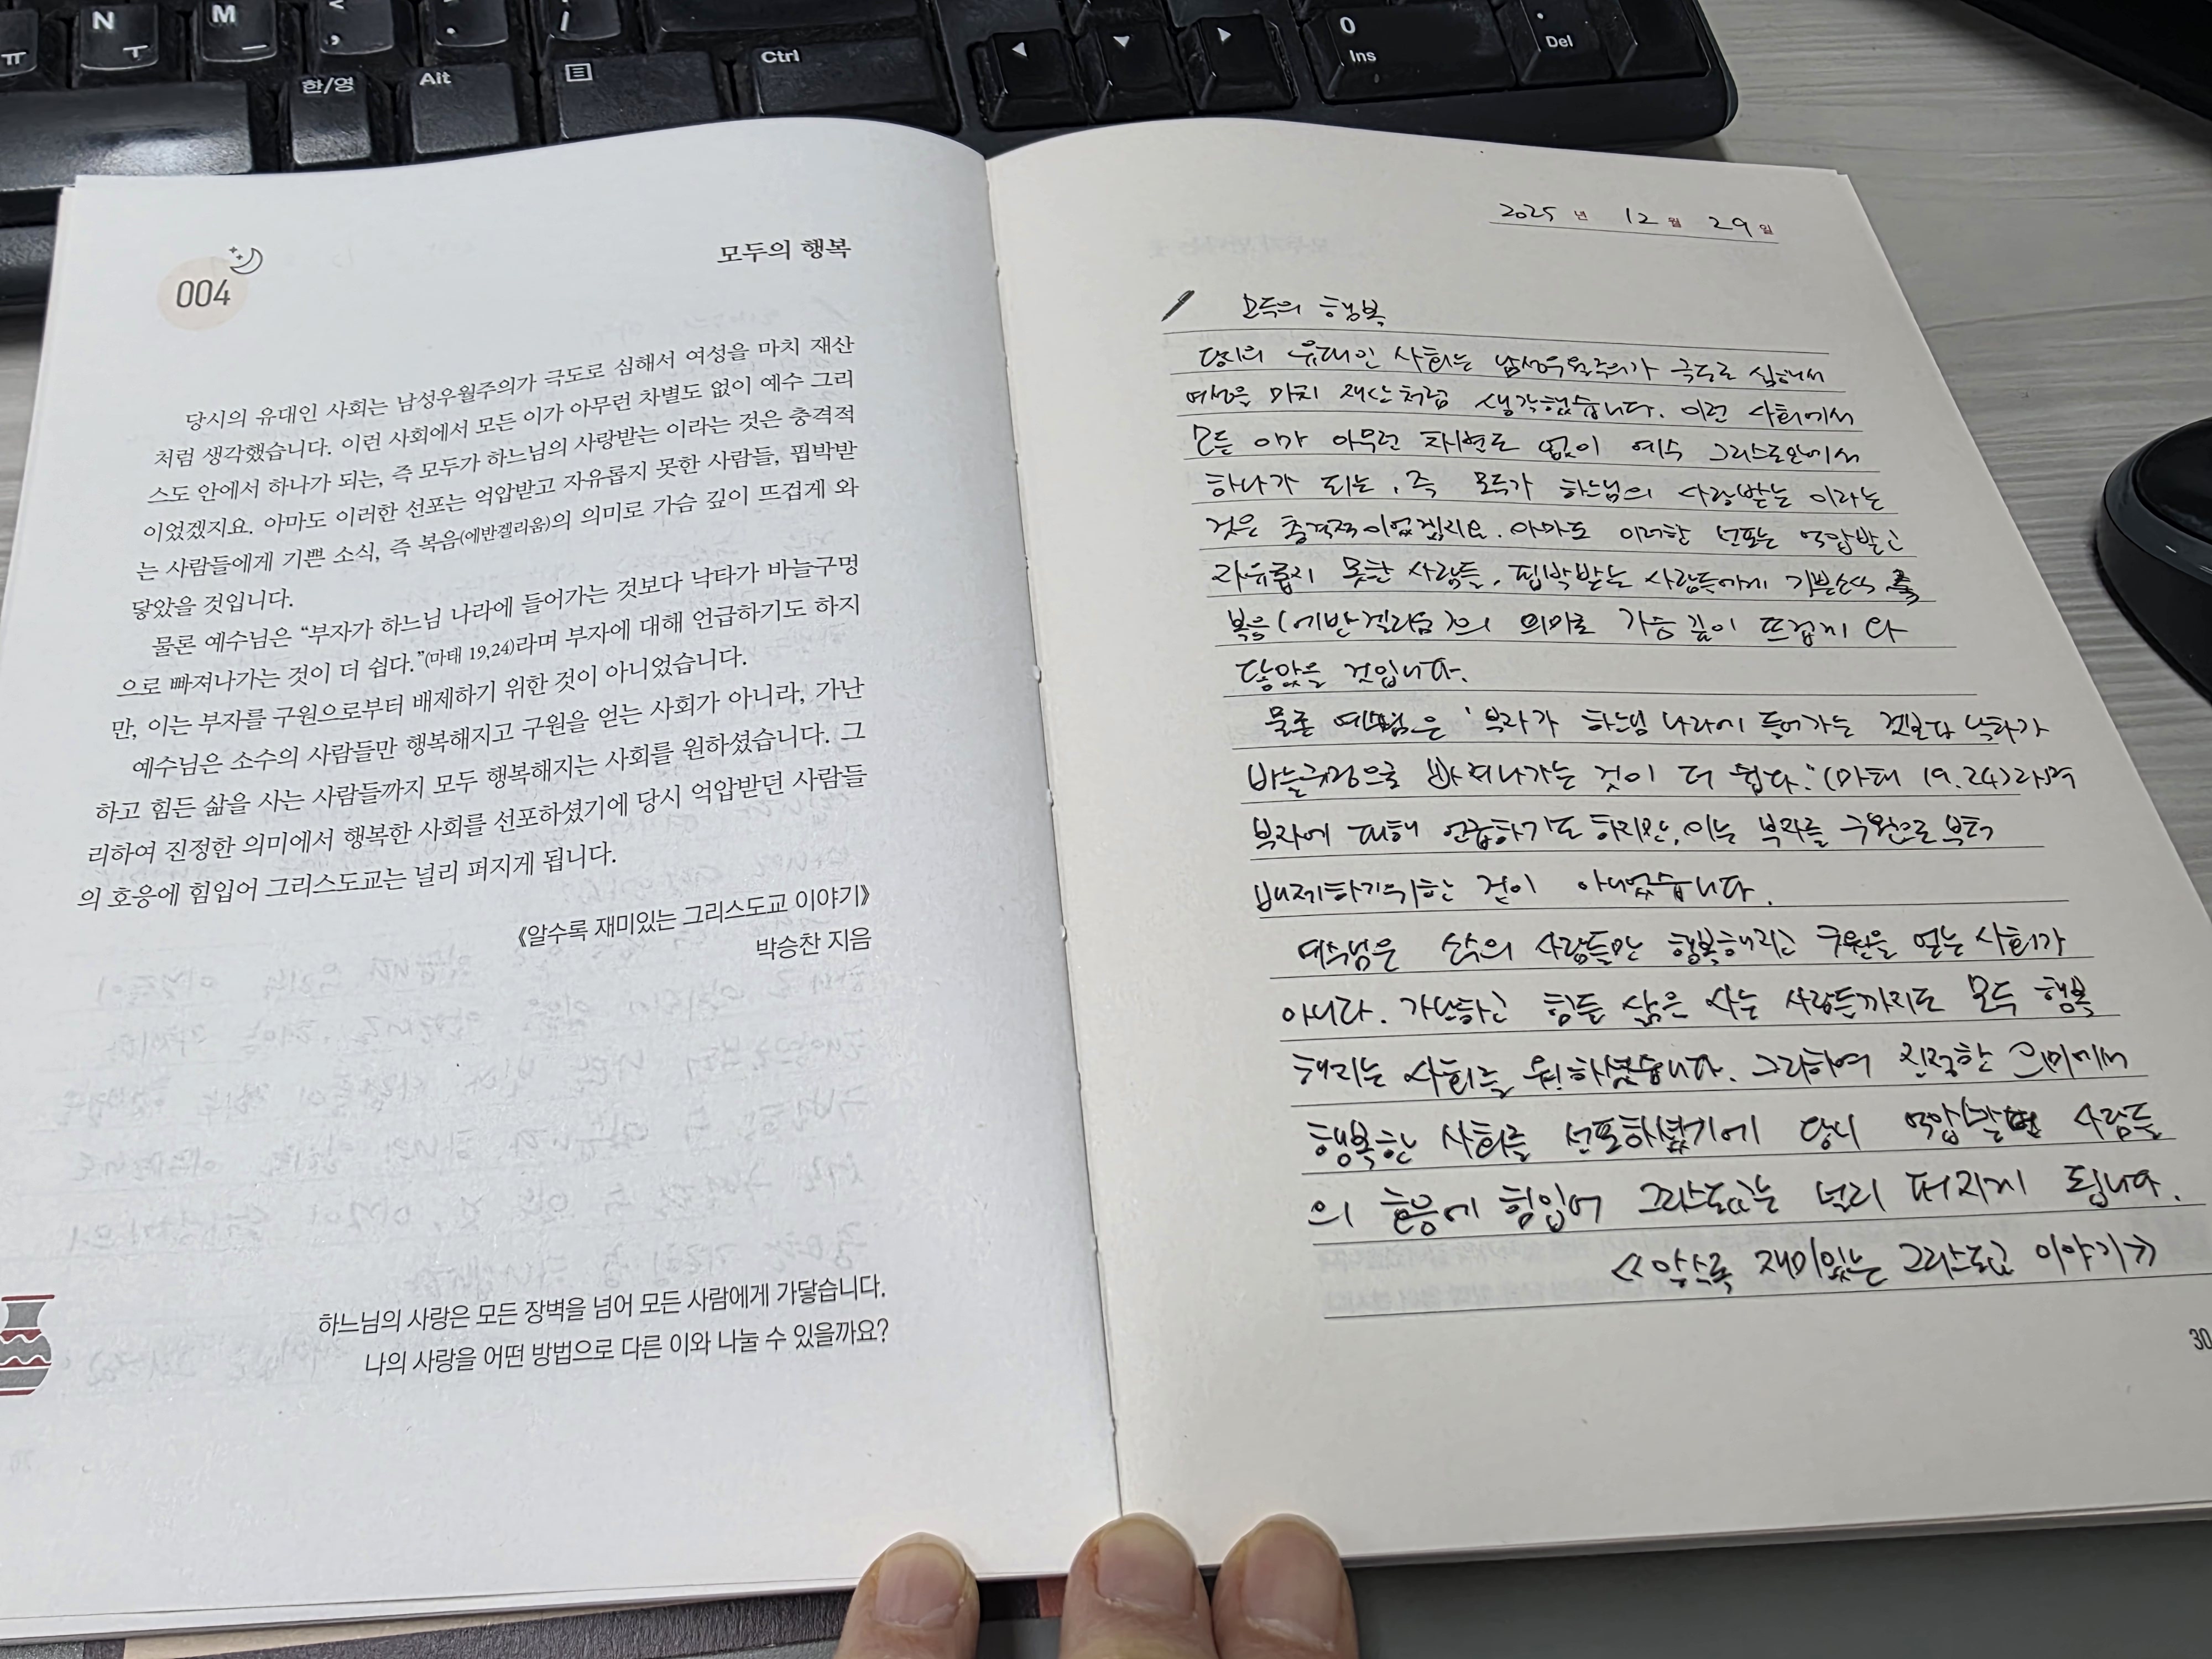 N
ㅜ
M
ㅡ
ㅠ
한/영
Alt
Ctrl
0
Ins
Del
004
모두의 행복
당시의 유대인 사회는 남성우월주의가 극도로 심해서 여성을 마치 재산
처럼 생각했습니다. 이런 사회에서 모든 이가 아무런 차별도 없이 예수 그리
스도 안에서 하나가 되는, 즉 모두가 하느님의 사랑받는 이라는 것은 충격적
이었겠지요. 아마도 이러한 선포는 억압받고 자유롭지 못한 사람들, 핍박받
는 사람들에게 기쁜 소식, 즉 복음(에반겔리움)의 의미로 가슴 깊이 뜨겁게 와
닿았을 것입니다.
물론 예수님은 “부자가 하느님 나라에 들어가는 것보다 낙타가 바늘구멍
으로 빠져나가는 것이 더 쉽다.”(마태 19,24)라며 부자에 대해 언급하기도 하지
만, 이는 부자를 구원으로부터 배제하기 위한 것이 아니었습니다.
예수님은 소수의 사람들만 행복해지고 구원을 얻는 사회가 아니라, 가난
하고 힘든 삶을 사는 사람들까지 모두 행복해지는 사회를 원하셨습니다. 그
리하여 진정한 의미에서 행복한 사회를 선포하셨기에 당시 억압받던 사람들
의 호응에 힘입어 그리스도교는 널리 퍼지게 됩니다.
《알수록 재미있는 그리스도교 이야기》
박승찬 지음
하느님의 사랑은 모든 장벽을 넘어 모든 사람에게 가닿습니다.
나의 사랑을 어떤 방법으로 다른 이와 나눌 수 있을까요?
2025 년 12 월 29 일
모두의 행복
당시의 유대인 사회는 남성우월주의가 극도로 심해서
여성을 마치 재산처럼 생각했습니다. 이런 사회에서
모든 이가 아무런 차별도 없이 예수 그리스도안에서
하나가 되는, 즉 모두가 하느님의 사랑받는 이라는
것은 충격적이었겠지요. 아마도 이러한 선포는 억압받고
자유롭지 못한 사람들, 핍박받는 사람들에게 기쁜소식 즉
복음(에반겔리움)의 의미로 가슴 깊이 뜨겁게 와
닿았을 것입니다.
물론 예수님은 '부자가 하느님 나라에 들어가는 것보다 낙타가
바늘구멍으로 빠져나가는 것이 더 쉽다."(마태 19.24)라며
부자에 대해 언급하기도 하지만, 이는 부자를 구원으로부터
배제하기위한 것이 아니었습니다.
예수님은 소수의 사람들만 행복해지고 구원을 얻는 사회가
아니라. 가난하고 힘든 삶은 사는 사람들까지도 모두 행복
해지는 사회를 원하셨습니다. 그리하여 진정한 의미에서
행복한 사회를 선포하셨기에 당시 억압받던 사람들
의 호응에 힘입어 그리스도교는 널리 퍼지게 됩니다.
《알수록 재미있는 그리스도교 이야기》
30